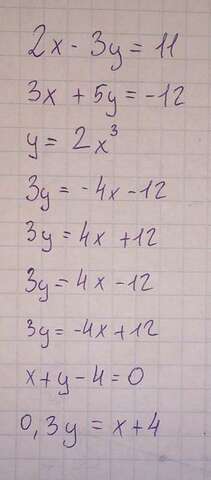 2x - 3y = 11
3x + 5y = -12
y = 2x³
3y = -4x - 12
3y = 4x + 12
3y = 4x - 12
3y = -4x + 12
x + y - 4 = 0
0,3y = x + 4